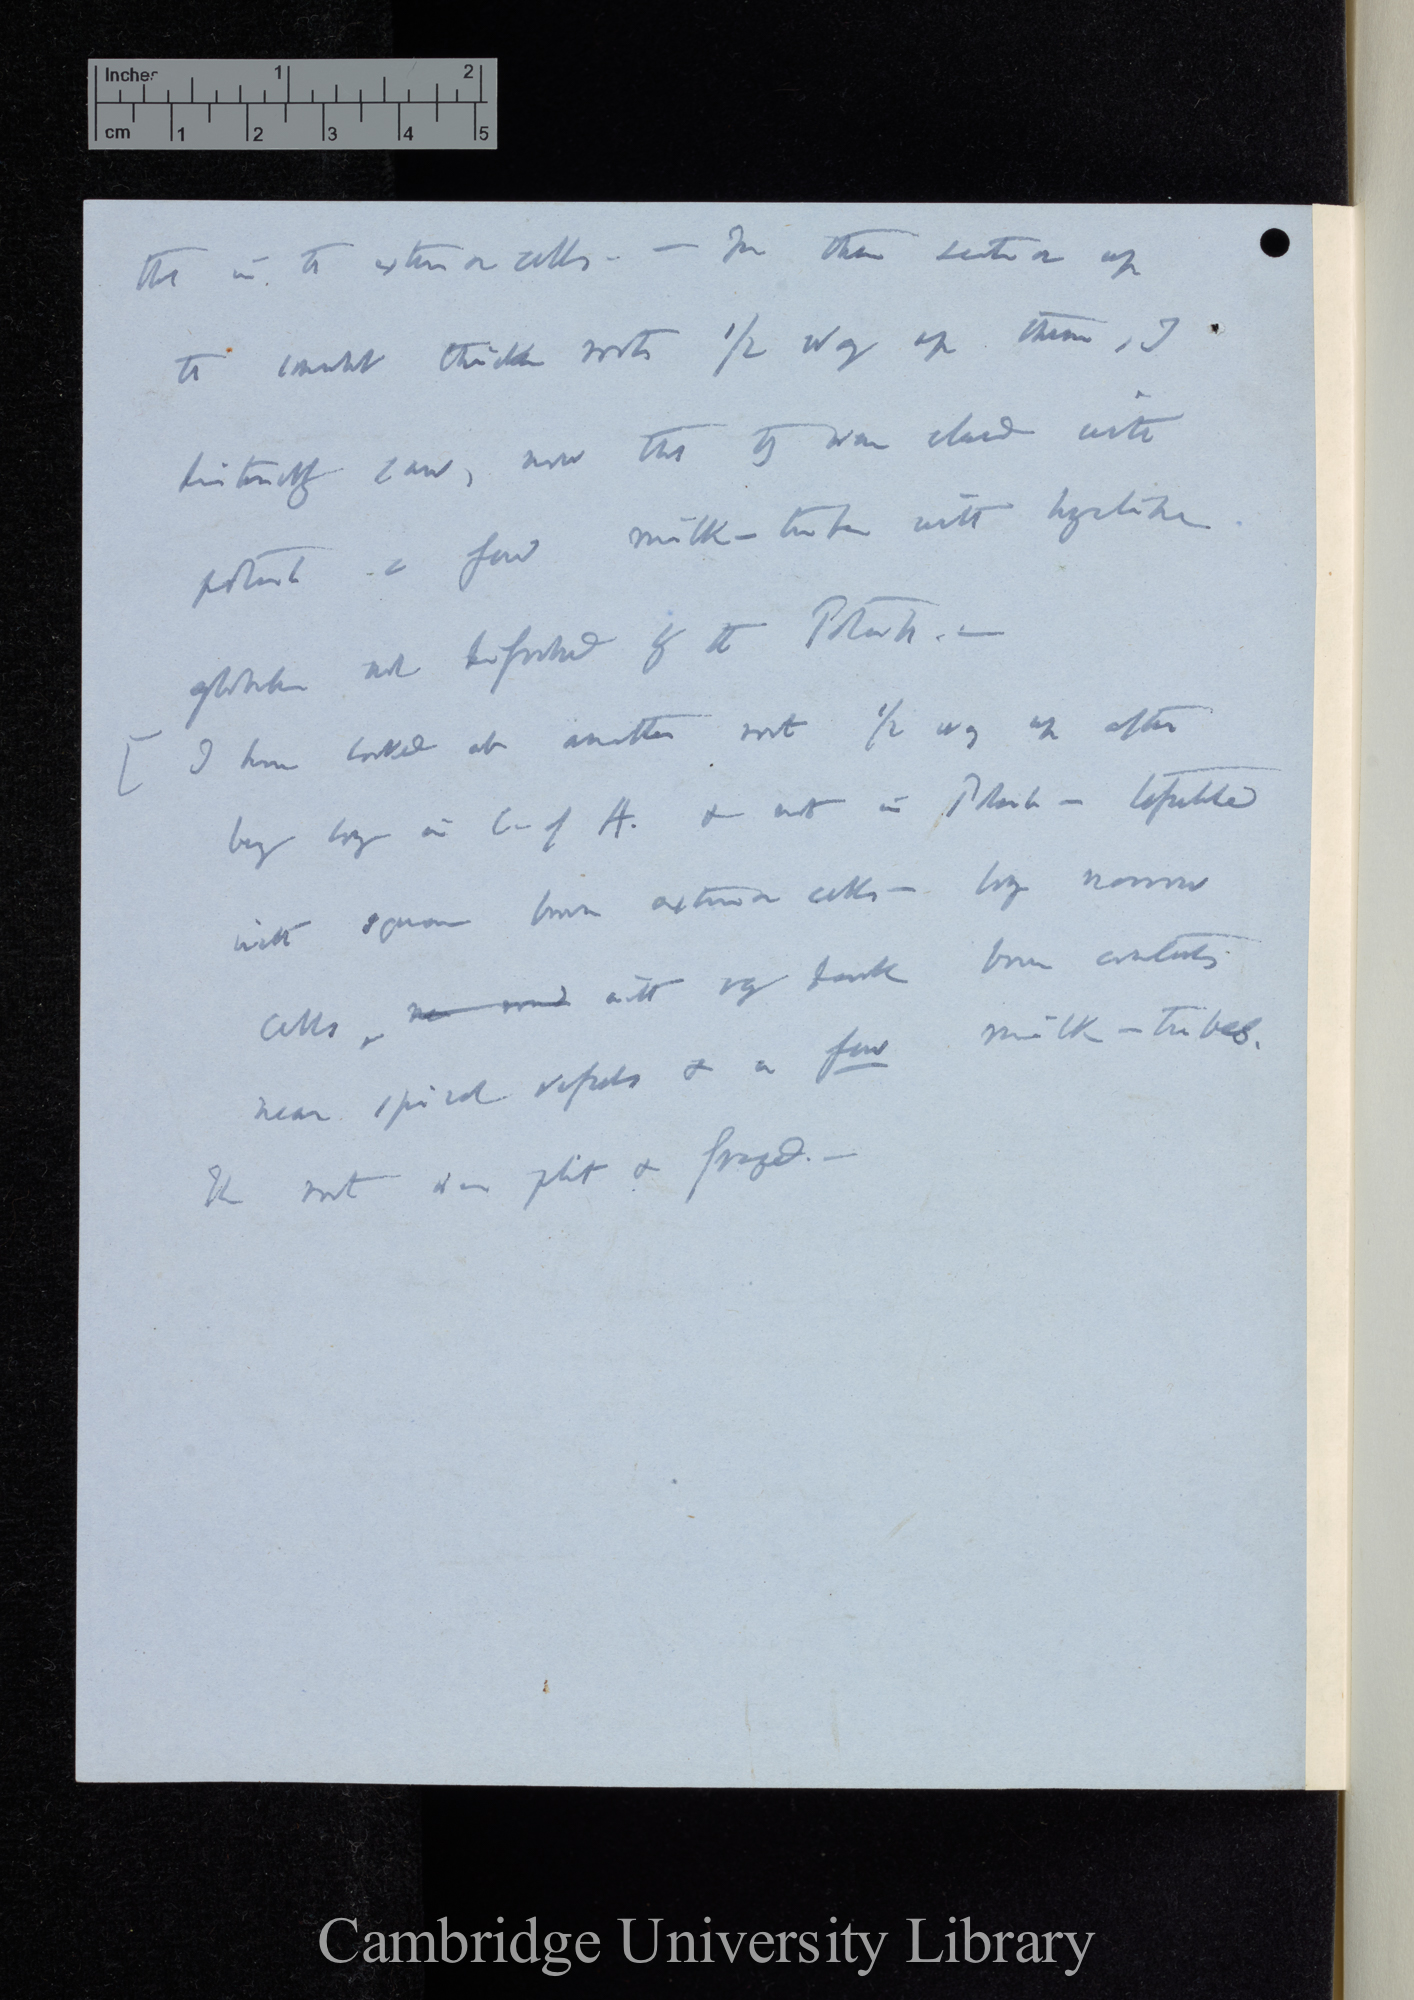 Inches 1 2
cm 1 2 3 4 5
than in the exterior cells. — In these section up
the somewhat thicker roots 1/2 way up them, I
distinctly saw, now that they were cleared with
potash a few milk-tubes with hyaline
globules not dissolved by the Potash. —
[ I have looked at another root 1/2 way up after
being long in C. of A. & not in Potash —
with square brown exterior cells — long narrow
cells, with very dark brown contents
near spiral vessels & a few milk-tubes.
The root was split &
Cambridge University Library